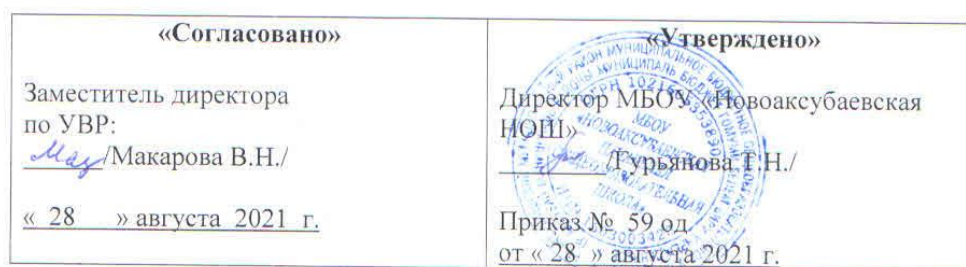 «Согласовано»
Заместитель директора
по УВР:
/Макарова В.Н./
« 28 » августа 2021 г.
«Утверждено»
Директор МБОУ «Новоаксубаевская
НОШ»
/Гурьянова Т.Н./
Приказ № 59 од
от « 28 » августа 2021 г.